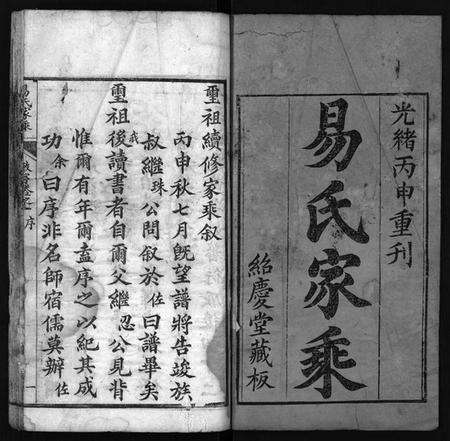 光緒丙申重刊
易氏家乘
紹慶堂藏板
璽祖續修家乘叙
丙申秋七月既望譜將告竣族
叔繼珠公問叙於佐曰譜畢矣
璽祖後讀書者自爾父繼忍公見背
惟爾有年爾盍序之以紀其成
功余曰序非名師宿儒莫辦佐
易氏家乘
序